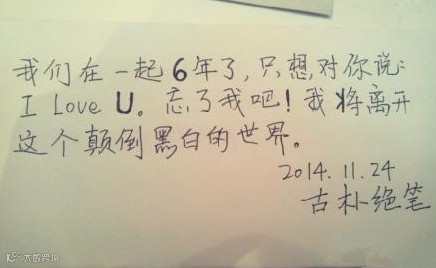 我们在一起6年了,只想对你说:
I Love U。忘了我吧!我将离开
这个颠倒黑白的世界。
2014.11.24
古朴绝笔
大数跨境